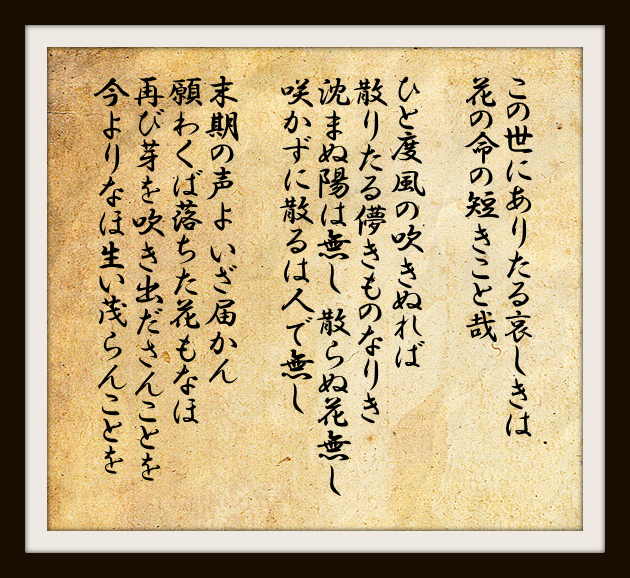 この世にありたる哀しきは
花の命の短きこと哉
ひと度風の吹きぬれば
散りたる儚きものなりき
沈まぬ陽は無し 散らぬ花無し
咲かずに散るは人で無し
末期の声よ いざ届かん
願わくば落ちた花もなほ
再び芽を吹き出ださんことを
今よりなほ生い茂らんことを